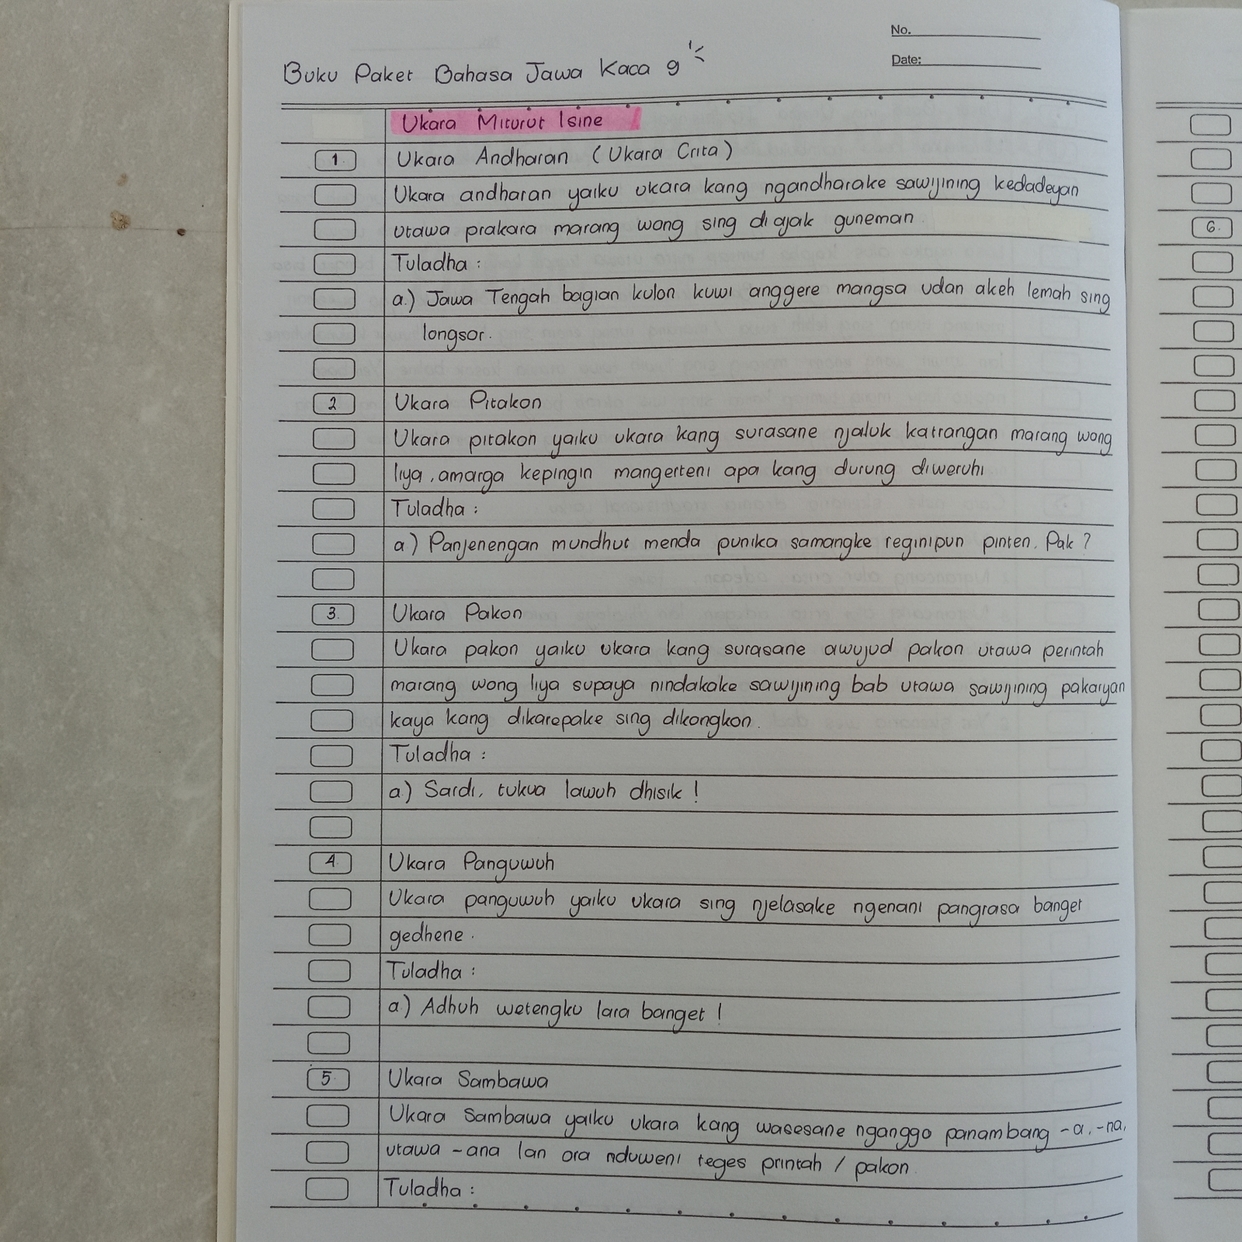 No.
Date:
Buku Paket Bahasa Jawa Kaca 9
Ukara Miturut Isine
1. Ukara Andharan (Ukara Crita)
Ukara andharan yaiku ukara kang ngandharake sawijining kedadeyan
utawa prakara marang wong sing di ajak guneman
Tuladha :
a.) Jawa Tengah bagian kulon kuwi anggere mangsa udan akeh lemah sing
longsor.
2 Ukara Pitakon
Ukara pitakon yaiku ukara kang surasane njaluk katrangan marang wong
liya, amarga kepingin mangerteni apa kang durung diweruhi
Tuladha :
a) Panjenengan mundhut menda punika samangke reginipun pinten, Pak ?
3. Ukara Pakon
Ukara pakon yaiku ukara kang surasane awujud pakon utawa perintah
marang wong liya supaya nindakake sawijining bab utawa sawijining pakaryan
kaya kang dikarepake sing dikongkon.
Tuladha :
a) Sardi, tukua lawuh dhisik !
4. Ukara Panguwuh
Ukara panguwuh yaiku ukara sing njelasake ngenani pangrasa banget
gedhene.
Tuladha :
a) Adhuh wetengku lara banget !
5 Ukara Sambawa
Ukara Sambawa yaiku ukara kang wasesane nganggo panambang -a, -na,
utawa -ana lan ora nduweni teges printah / pakon
Tuladha :
6.